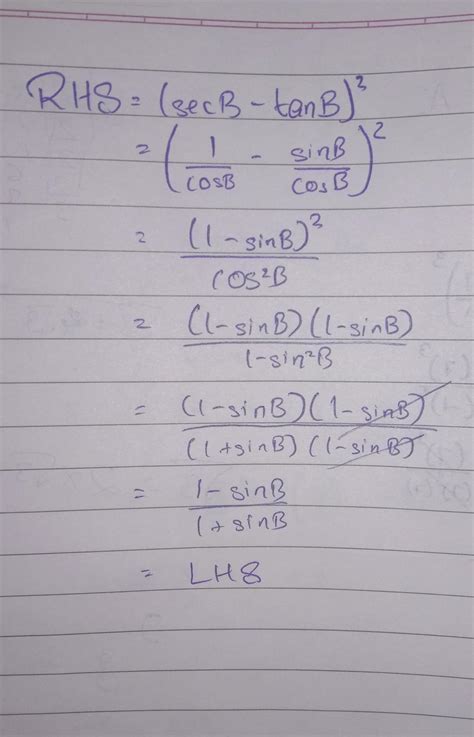 RHS = (secB - tanB)²
= (1/cosB - sinB/cosB)²
= (1 - sinB)²/cos²B
= (1-sinB)(1-sinB)/1-sin²B
= (1-sinB)(1-sinB)/(1+sinB)(1-sinB)
= 1-sinB/1+sinB
= LHS